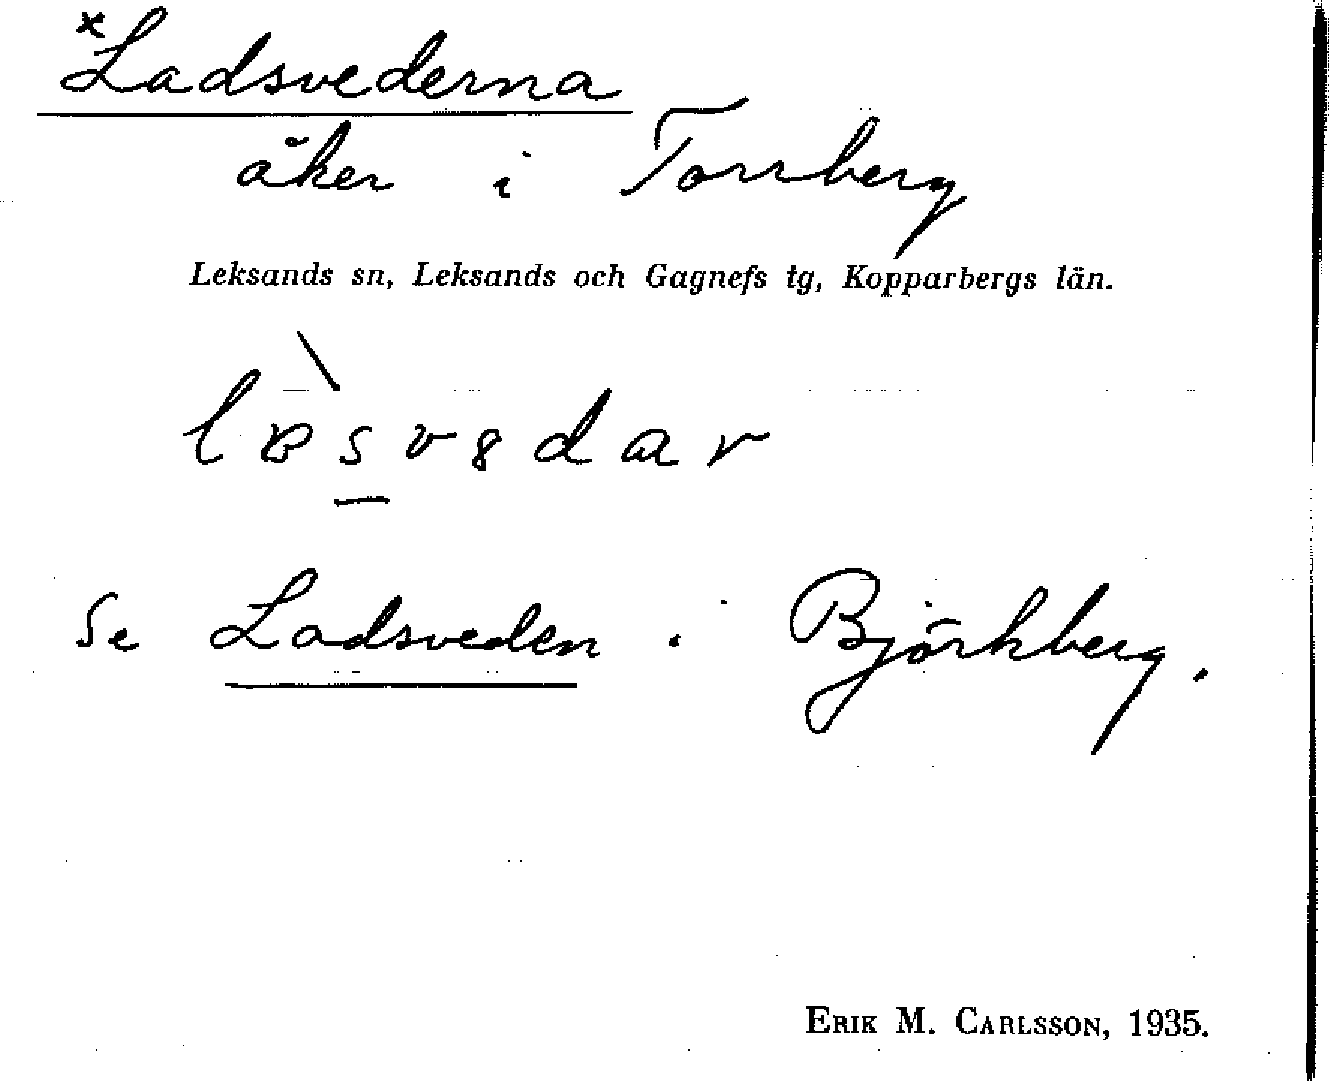 *Ladsvederna
åker i Torrberg
Leksands sn, Leksands och Gagnefs tg, Kopparbergs län.
Se Ladsveden i Björkberg.
ERIK M. CARLSSON, 1935.